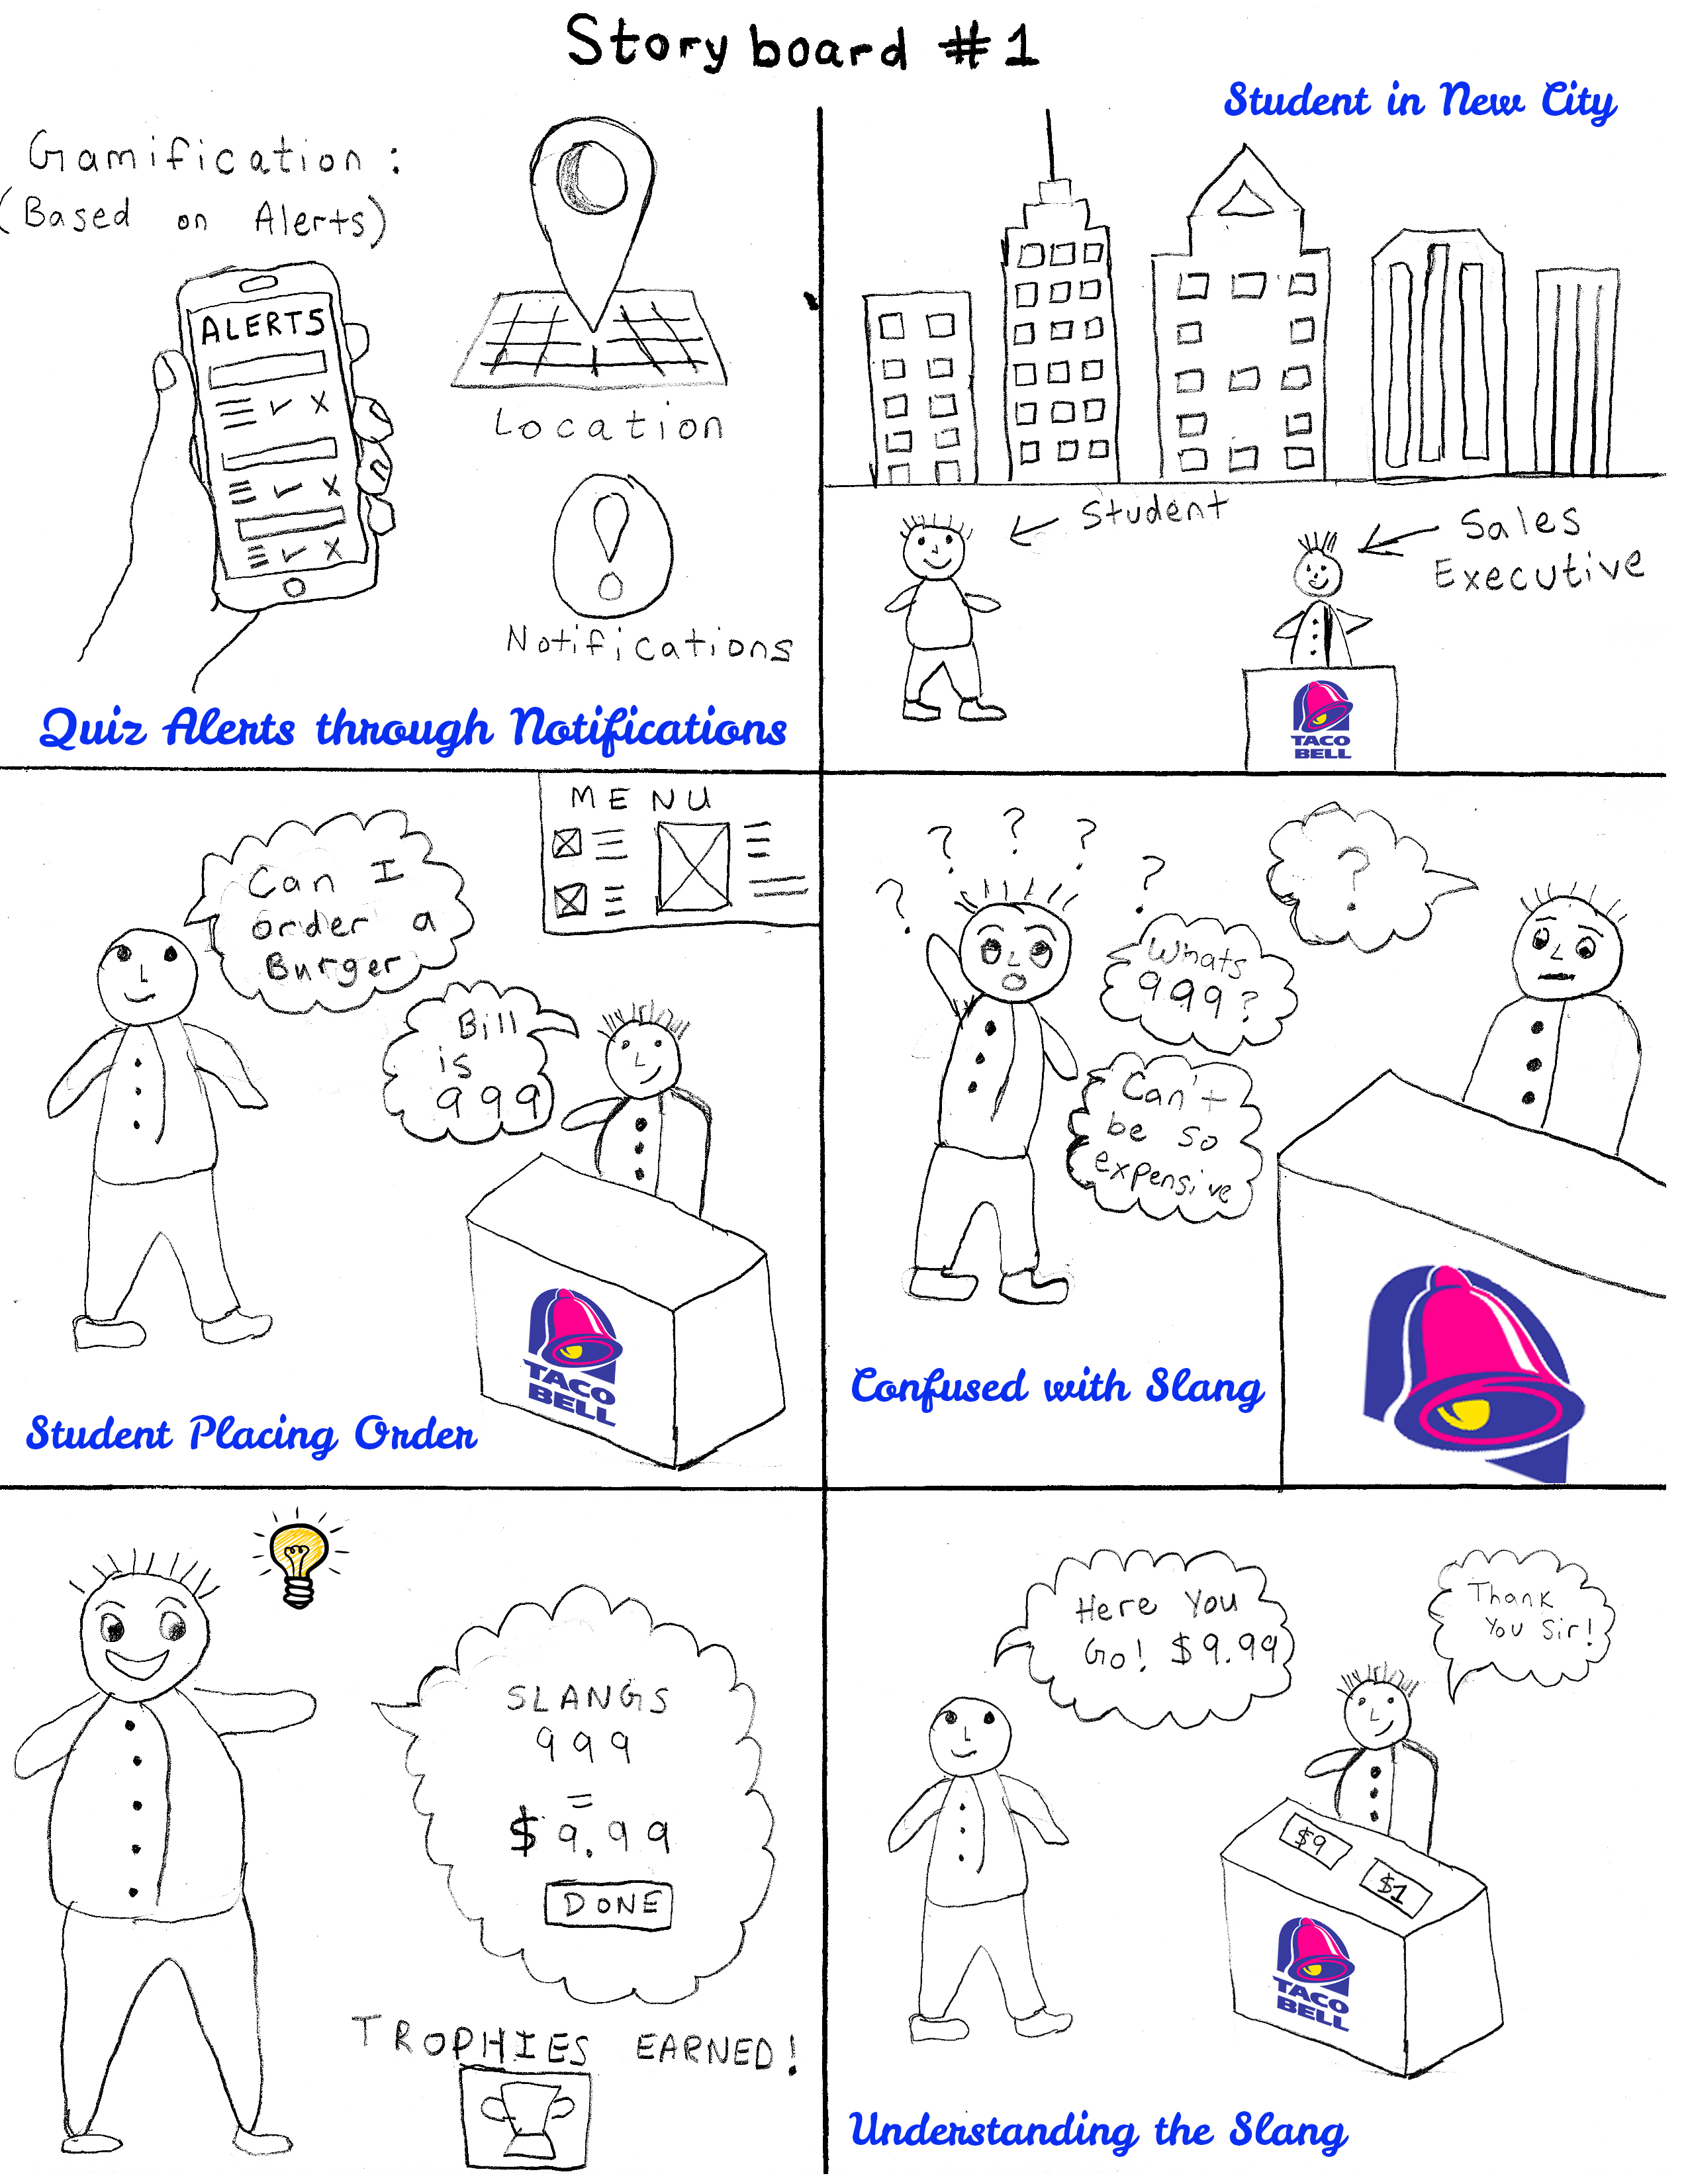 Storyboard #1
Gamification:
(Based on Alerts)
ALERTS
Location
Notifications
Quiz Alerts through Notifications
Student in New City
Student
Sales
Executive
TACO
BELL
MENU
Can I
order a
Burger
Bill
is
999
TACO
BELL
Student Placing Order
? ? ? ? ?
?
Whats
999?
Can't
be so
expensive
Confused with Slang
SLANGS
999
=
$9.99
DONE
TROPHIES EARNED!
Here You
Go! $9.99
Thank
You Sir!
$9
$1
TACO
BELL
Understanding the Slang